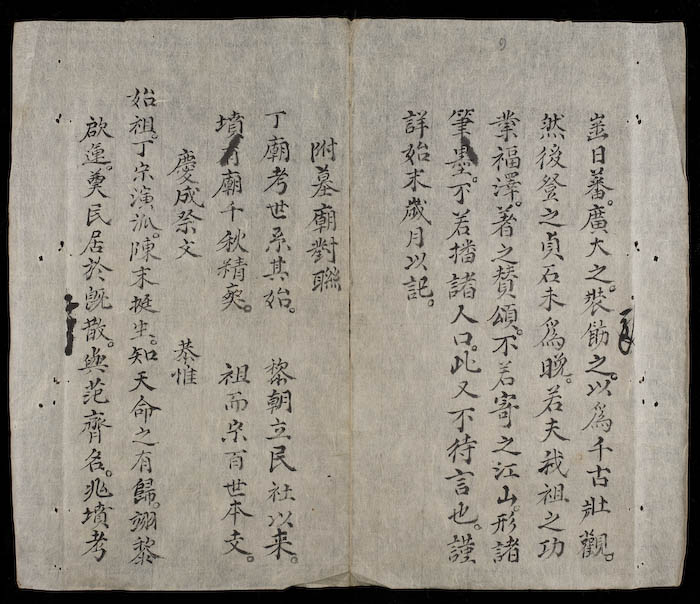 日蕃。廣大之。裝餙之。以爲千古壯觀。
然後登之貞石未爲晚。若夫我祖之功
業福澤。著之贊頌。不若寄之江山。形諸
筆墨。不若播諸人口。此又不待言也。謹
詳始末歲月以記。
附墓廟對聯
丁廟考世系其始。 黎朝立民社以来。
墳有廟千秋精爽。 祖而宗百世本支。
慶成祭文
恭惟
始祖。丁宗演派。陳末挺生。知天命之有歸。翊黎
啟運。奠民居於旣散。與范齊名。兆墳考